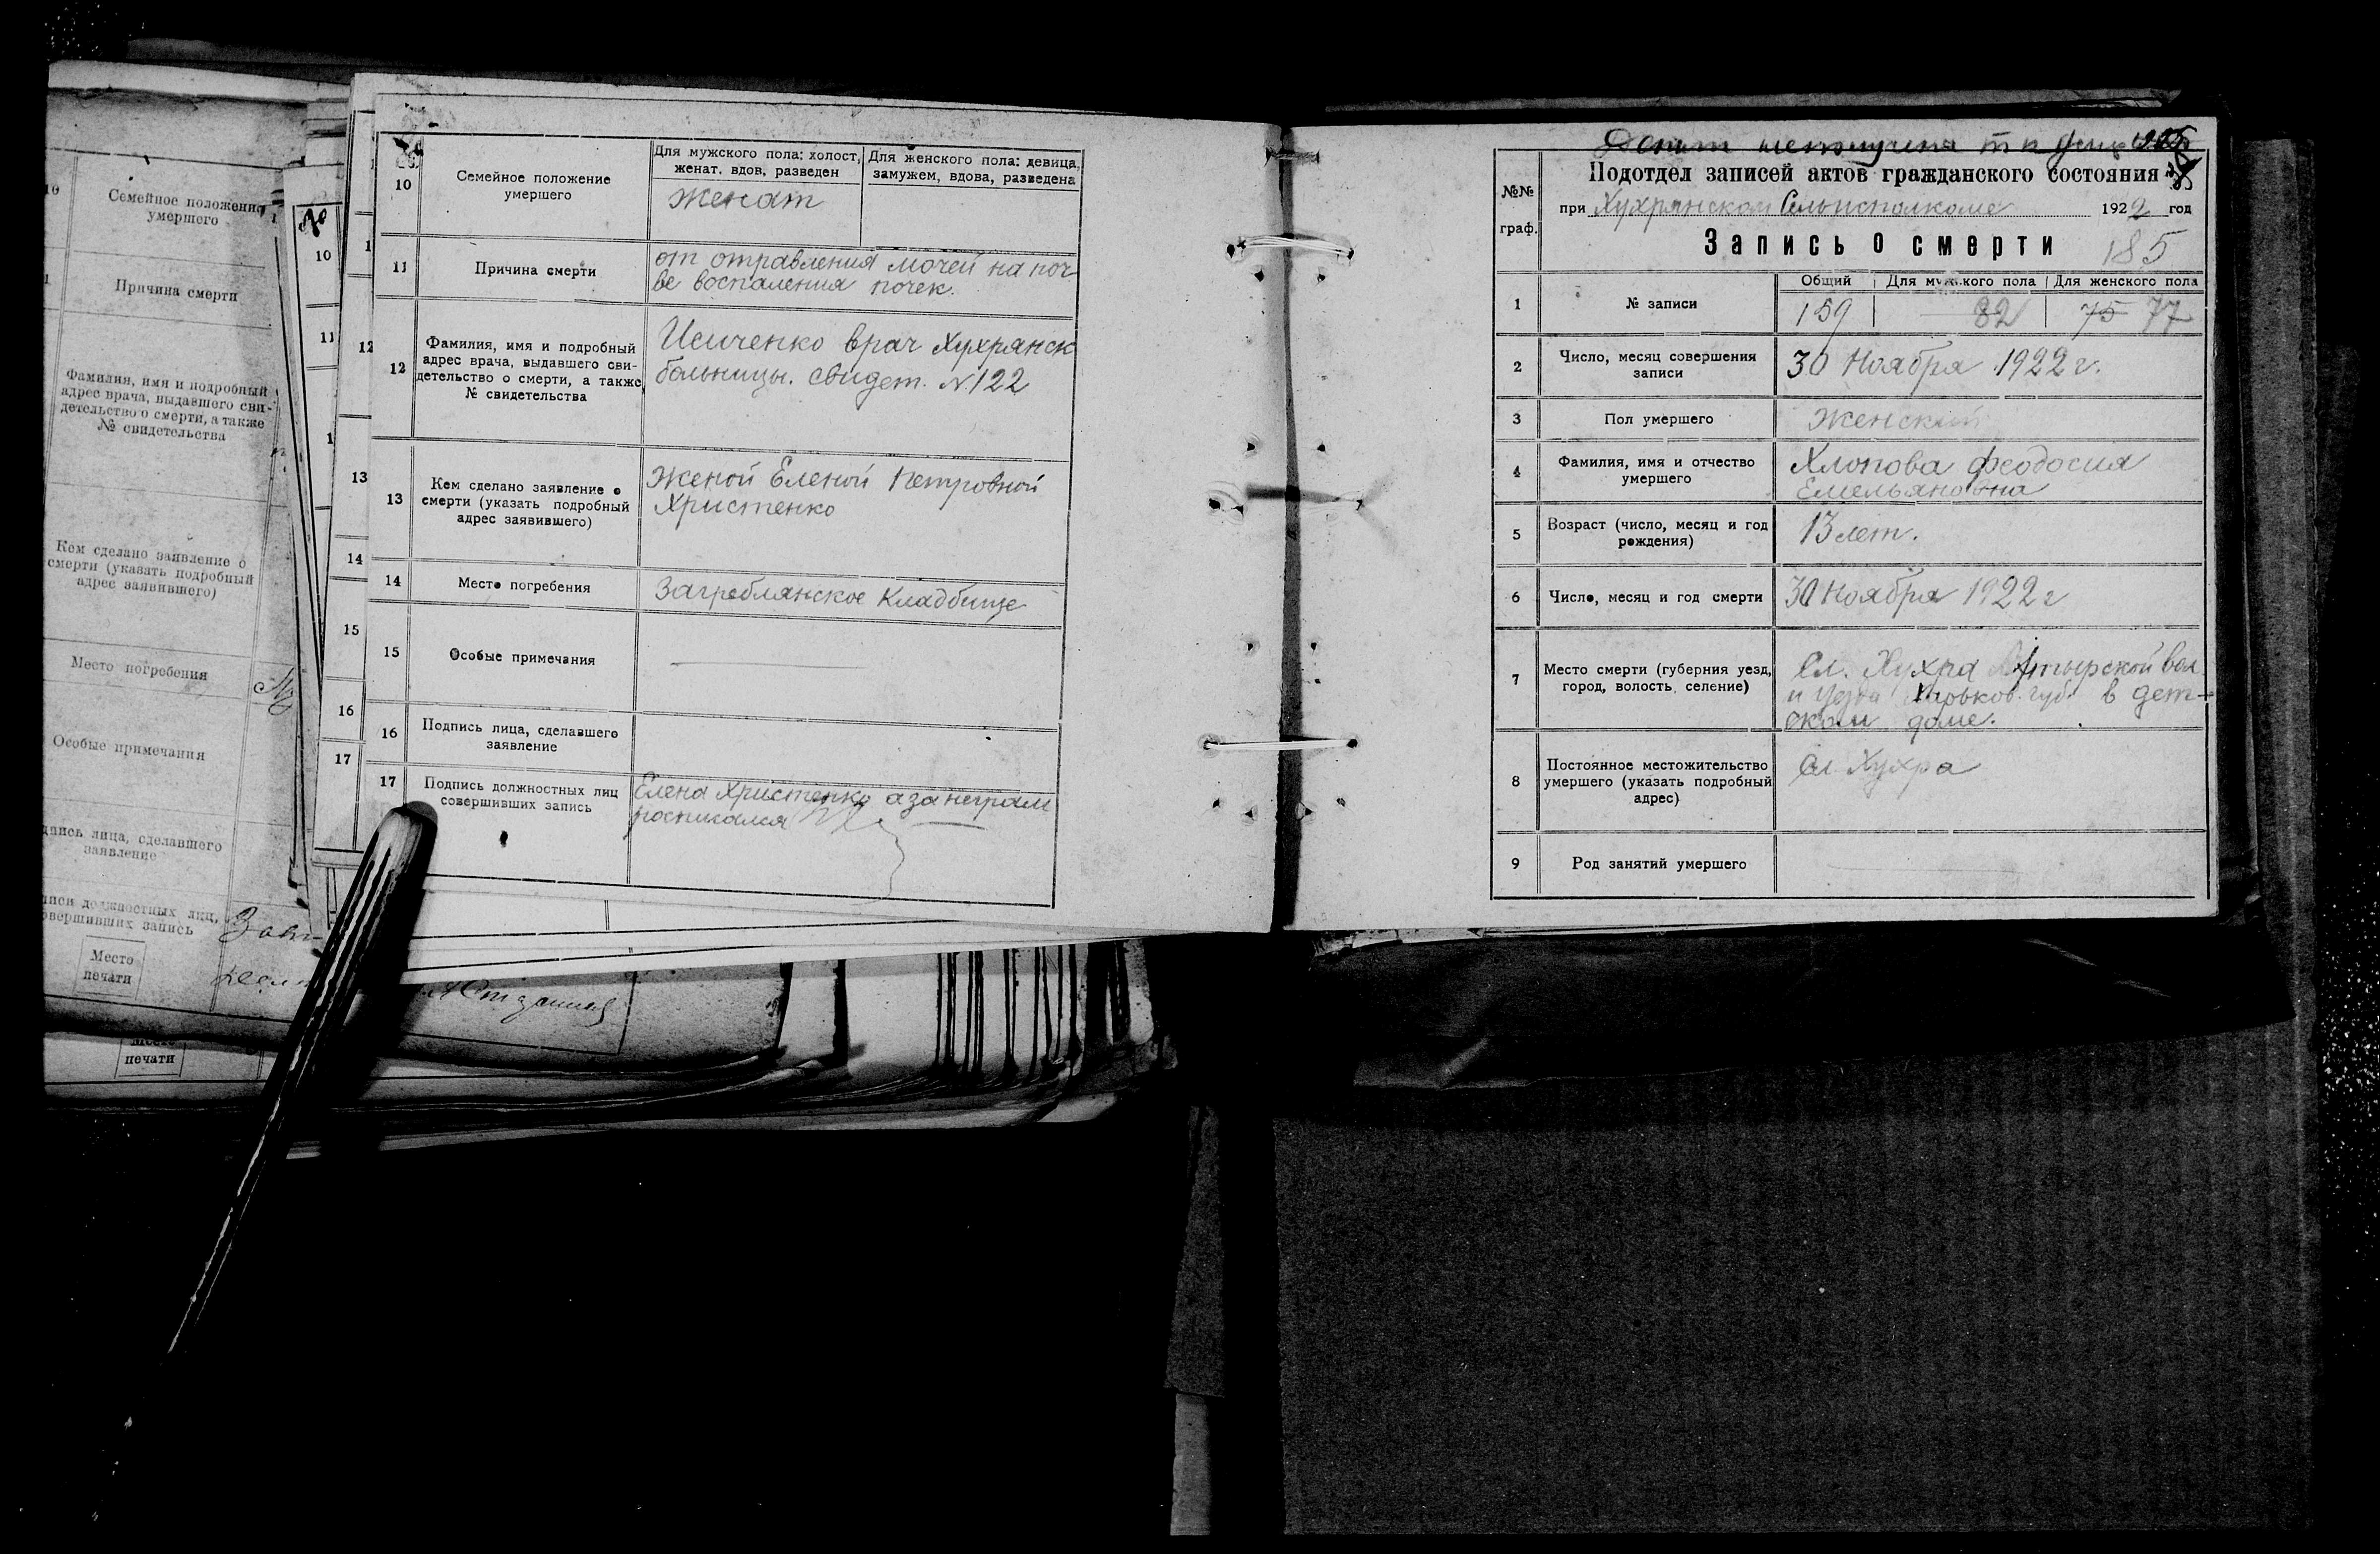 10
Семейное положение
умершего
Причина смерти
Фамилия, имя и подробный
адрес врача, выдавшего сви-
детельство о смерти, а также
№ свидетельства
Кем сделано заявление о
смерти (указать подробный
адрес заявившего)
Место погребения
Особые примечания
дпись лица, сделавшего
заявление
писи должностных лиц,
овершивших запись
Место
печати
печати
10
11
12
13
14
15
16
17
10
Семейное положение
умершего
Для мужского пола: холост,
женат. вдов, разведен
Для женского пола: девица,
замужем, вдова, разведена
женат
11
Причина смерти
от отравления мочей на поч-
ве воспаления почек.
12
Фамилия, имя и подробный
адрес врача, выдавшего сви-
детельство о смерти, а также
№ свидетельства
врач Хухрянск
больницы. свидет. N.122
13
Кем сделано заявление о
смерти (указать подробный
адрес заявившего)
Женой Еленой Петровной
Христенко
14
Место погребения
Загреблянское Кладбище
15
Особые примечания
16
Подпись лица, сделавшего
заявление
17
Подпись должностных лиц
совершивших запись
Елена Христенко а за неграм
росписался
№№
граф.
Подотдел записей актов гражданского состояния
при Хухрянском Сельисполкоме 1922 год
Запись о смерти
185
1
№ записи
Общий
Для мужского пола
Для женского пола
159
82
75 77
2
Число, месяц совершения
записи
30 Ноября 1922 г.
3
Пол умершего
Женский
4
Фамилия, имя и отчество
умершего
Хлопова Феодосия
Емельяновна
5
Возраст (число, месяц и год
рождения)
13 лет.
6
Число, месяц и год смерти
30 Ноября 1922 г
7
Место смерти (губерния уезд,
город, волость, селение)
Сл. Хухра Ахтырской вол.
и уезда Харьков. губ. в дет-
ском доме.
8
Постоянное местожительство
умершего (указать подробный
адрес)
Сл. Хухра
9
Род занятий умершего